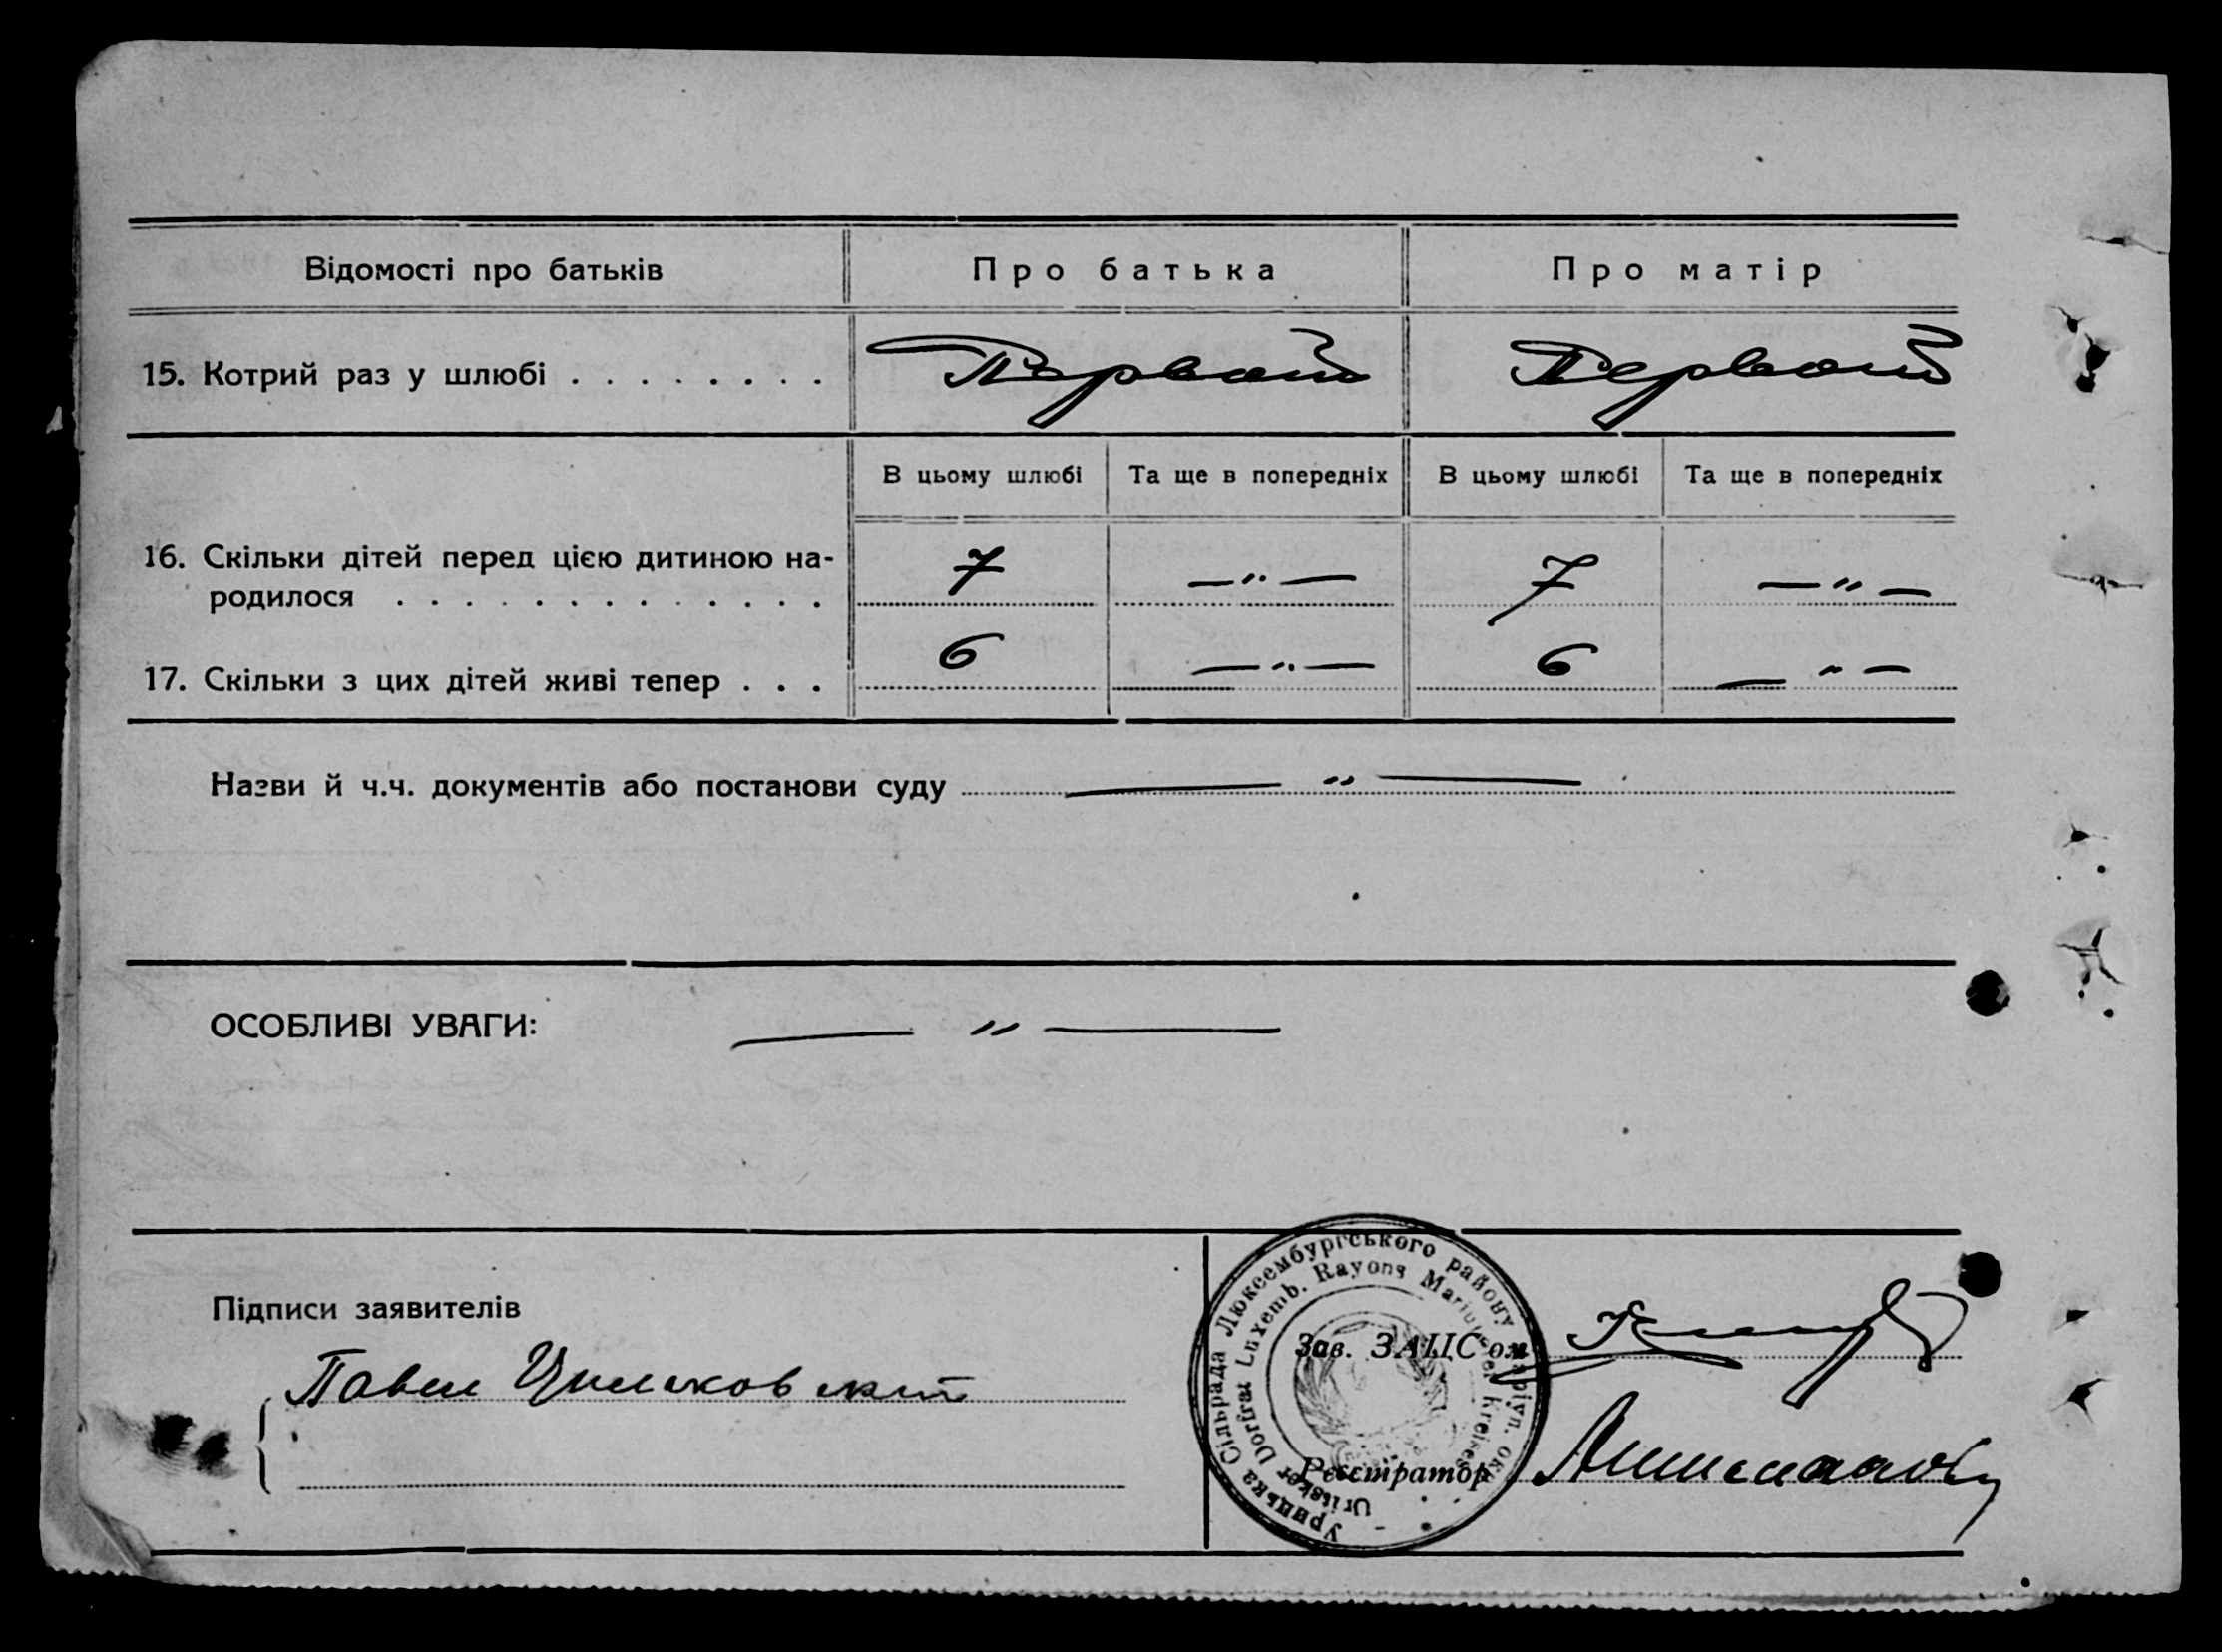 Відомості про батьків Про батька Про матір
15. Котрий раз у шлюбі . . . . . . . . Первый Первый
В цьому шлюбі Та ще в попередніх В цьому шлюбі Та ще в попередніх
16. Скільки дітей перед цією дитиною на-
родилося . . . . . . . . . . . . . 7 — " — 7 — " —
17. Скільки з цих дітей живі тепер . . . 6 — " — 6 — " —
Назви й ч.ч. документів або постанови суду — " —
ОСОБЛИВІ УВАГИ: — " —
Підписи заявителів
Павел
Зав. ЗАЦС'ом
Реєстратор
Урицька Сільрада Люксембургського району Маріуп. окр.
Uritsker Dorfrat Luxemb. Rayons Mariupoler Kreises